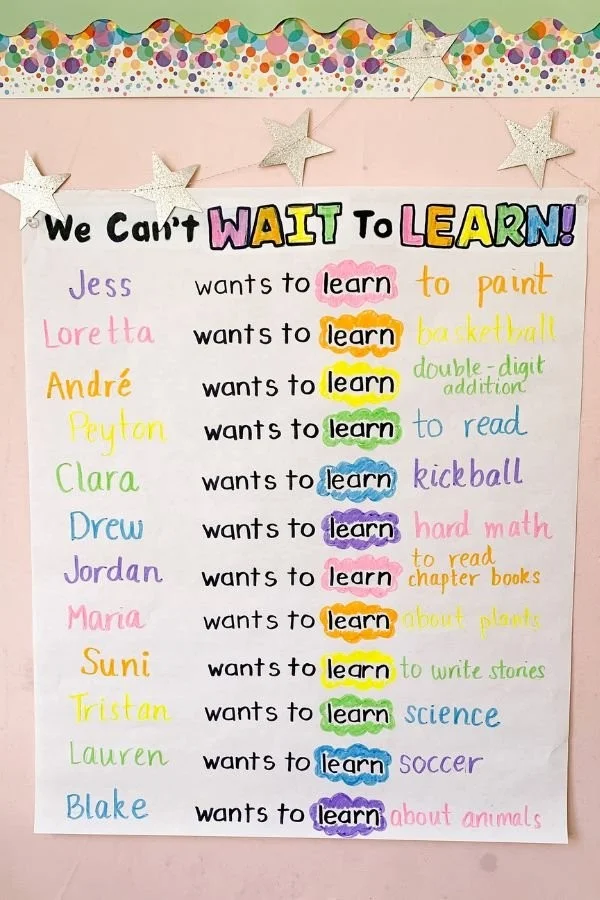 We Can't WAIT To LEARN!
Jess wants to learn to paint
Loretta wants to learn basketball
André wants to learn double-digit addition
Peyton wants to learn to read
Clara wants to learn kickball
Drew wants to learn hard math
Jordan wants to learn to read chapter books
Maria wants to learn about plants
Suni wants to learn to write stories
Tristan wants to learn science
Lauren wants to learn soccer
Blake wants to learn about animals